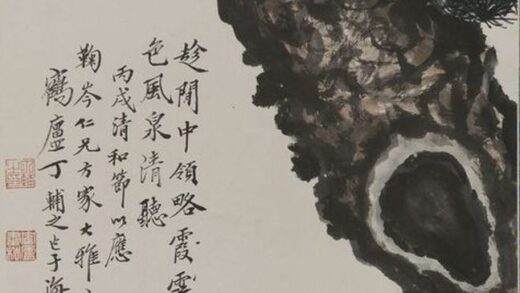 趁閒中領略霞
色風泉清聽
丙戌清和節以應
鞠岑仁兄方家大雅
鶴廬丁輔之乍于海